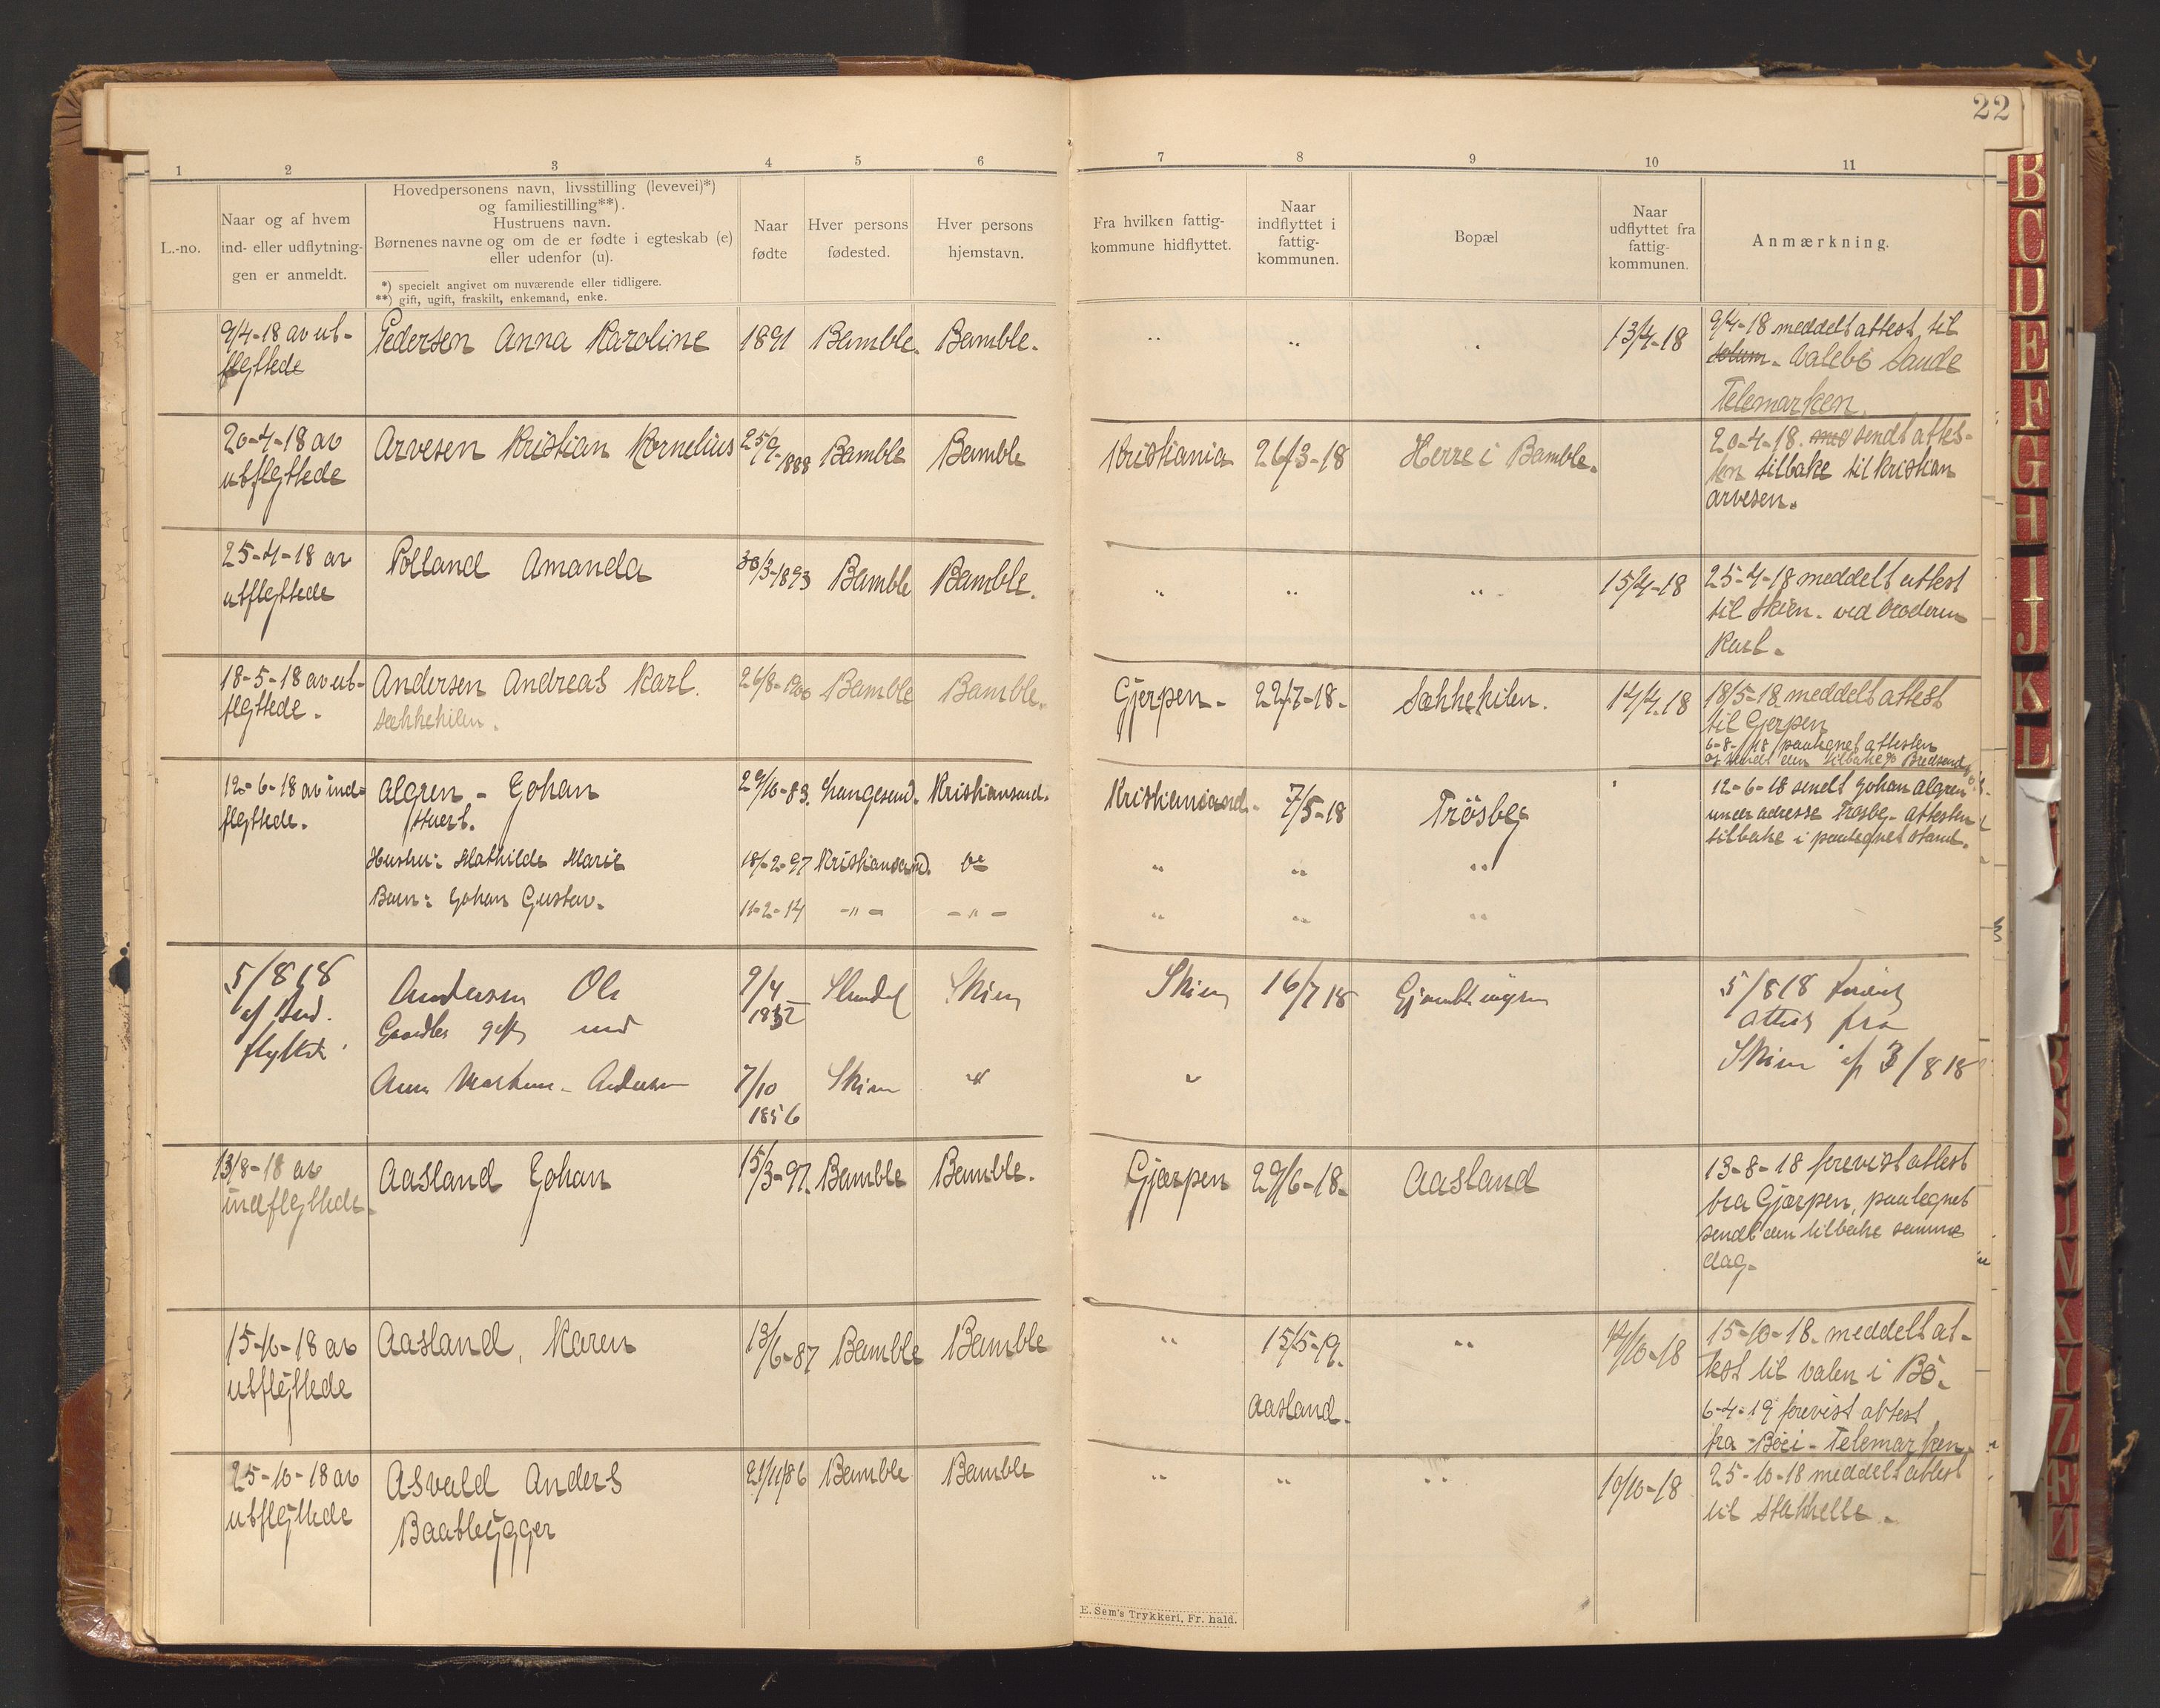 22
1 2 3 4 5 6 7 8 9 10 11
L.-no.
Naar og af hvem
ind- eller udflytnin-
gen er anmeldt.
Hovedpersonens navn, livsstilling (levevei)*)
og familiestilling**).
Hustruens navn.
Børnenes navne og om de er fødte i egteskab (e)
eller udenfor (u).
*) specielt angivet om nuværende eller tidligere.
**) gift, ugift, fraskilt, enkemand, enke.
Naar
fødte
Hver persons
fødested.
Hver persons
hjemstavn.
Fra hvilken fattig-
kommune hidflyttet.
Naar
indflyttet i
fattig-
kommunen.
Bopæl
Naar
udflyttet fra
fattig-
kommunen.
Anmærkning.
9/4-18 av ut-
flyttede
Pedersen Anna Karoline
1891
Bamble.
Bamble.
„
„
13/4-18
9/4-18 meddelt attest til
Solum - Valebö Saude
Telemarken.
20-4-18 av
utflyttede
Arvesen Kristian Kornelius
25/9-1888
Bamble
Bamble
Kristiania
26/3-18
Herre i Bamble.
20-4-18. sendt attes-
ten tilbake til Kristian
Arvesen.
25-4-18 av
utflyttede
Polland Amanda
30/3-1893
Bamble
Bamble.
„
„
„
15/4-18
25-4-18 meddelt attest
til Skien. ved broderen
Karl.
18-5-18 av ut-
flyttede.
Andersen Andreas Karl.
Sækkekilen.
26/8-1900
Bamble
Bamble.
Gjerpen.
22/7-18.
Sækkekilen.
14/4.18
18/5-18 meddelt attest
til Gjerpen
6-8-18 paategnet attesten
og sendt den tilbake
12-6-18 av ind-
flyttede.
Algren - Johan
stuert.
29/10-83.
Langesund.
Kristiansand.
Kristiansand.
7/5-18
Trösby
12-6-18 sendt Johan Algren
under adresse Trosby - attesten
tilbake i paategnet stand.
Hustru: Mathilde Marie
18/-2-97
Kristiansand.
do
„
„
„
Barn: Johan Gustav.
11-2-14
-„-
-„-
„
„
„
5/8 18
af Ind.
flyttede
Andersen Ole
gift med
9/4
1852
Skien
Skien
16/7 18
5/8 18 forevist
attest fra
Skien af 3/8 18
Anna Andersen
7/10
1856
Skien
"
"
13/8-18 av
indflyttede.
Aasland Johan
15/3-97.
Bamble
Bamble.
Gjærpen
29/6-18.
Aasland
13-8-18 forevist attest
fra Gjærpen, paategnet
sendt den tilbake samme
dag.
15-10-18 av
utflyttede
Aasland, Karen
13/6-87
Bamble
Bamble
„
15/5-19.
Aasland.
„
14/10-18
15-10-18. meddelt at-
test til Valen i Bö.
6-4-19 forevist attest
fra Bö i Telemarken.
25-10-18 av
utflyttede
Asvald Anders
Baatbygger
21/11/86
Bamble
Bamble
„
„
„
10/10-18
25-10-18 meddelt attest
til Stathelle.
E. Sem's Trykkeri, Fr. hald.
B
C
D
E
F
G
H
I
J
K
L
X
Y
Z
Æ
Ø